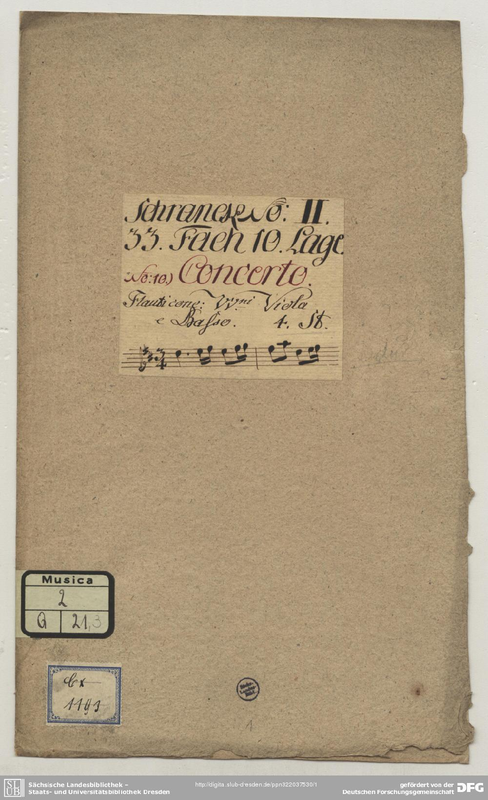 Schranck No: II.
33. Fach 10. Lage.
No: 10.) Concerto.
Flauti conc: VV.ni Viola
e Basso. 4. St.
Musica
2
Q 21,3
Cx
1191
1
Sächsische Landesbibliothek –
Staats- und Universitätsbibliothek Dresden
http://digital.slub-dresden.de/ppn322037530/1
gefördert von der
Deutschen Forschungsgemeinschaft
DFG